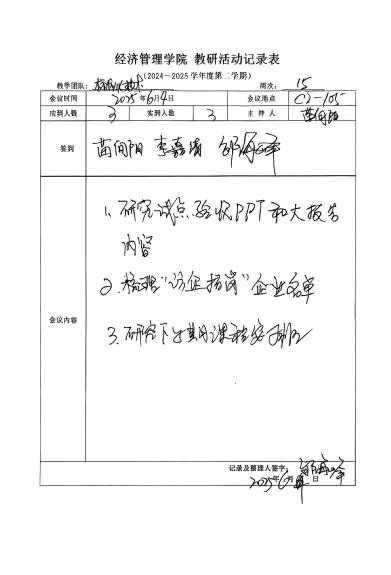 经济管理学院 教研活动记录表
(2024～2025 学年度第二学期)
教学团队： 周次： 15
会议时间 2025年6月4日 会议地点 C2-105
应到人数 3 实到人数 3 主 持 人 苗向阳
签到 苗向阳 李嘉倩
会议内容
1. 研究试点验收PPT和大报告
内容
2. 梳理“访企拓岗”企业名单
3. 研究下学期课程安排
记录及整理人签字：
2025年6月 日